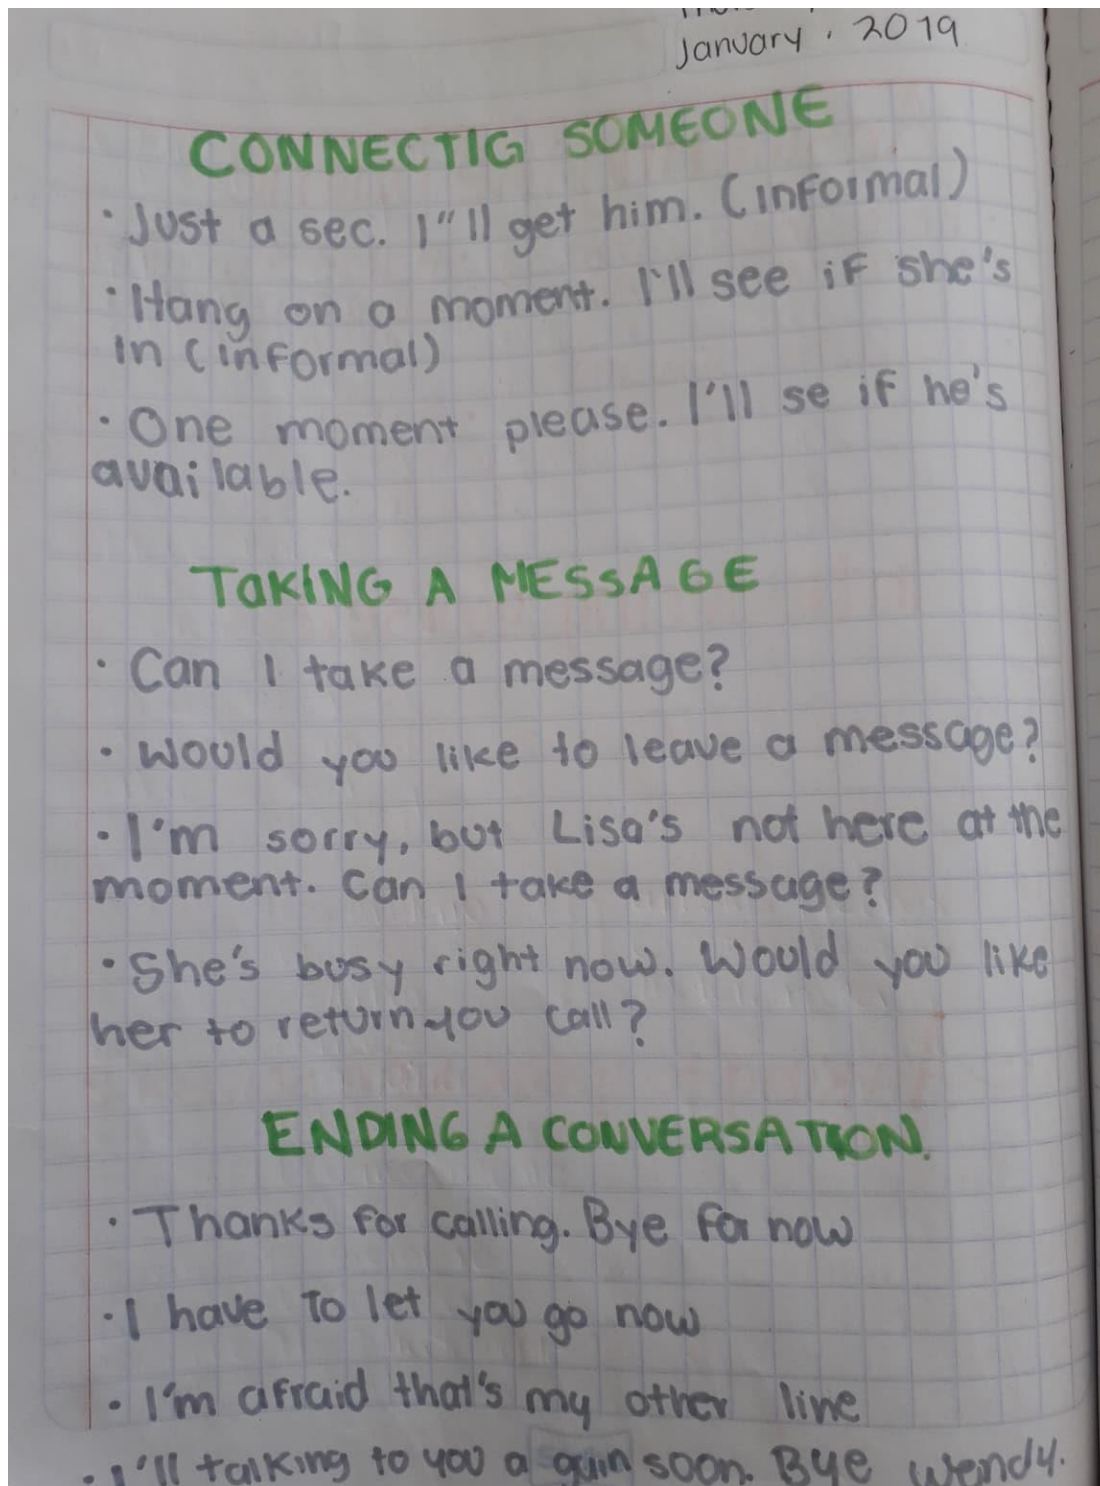 January. 2019
CONNECTIG SOMEONE
· Just a sec. I"ll get him. (informal)
· Hang on a moment. I'll see if she's
in (informal)
· One moment please. I'll se if he's
available.
TAKING A MESSAGE
· Can I take a message?
· Would you like to leave a message?
· I'm sorry, but Lisa's not here at the
moment. Can I take a message?
· She's busy right now. Would you like
her to return you call?
ENDING A CONVERSATION.
· Thanks for calling. Bye for now
· I have to let you go now
· I'm afraid that's my other line
· I'll talking to you again soon. Bye Wendy.